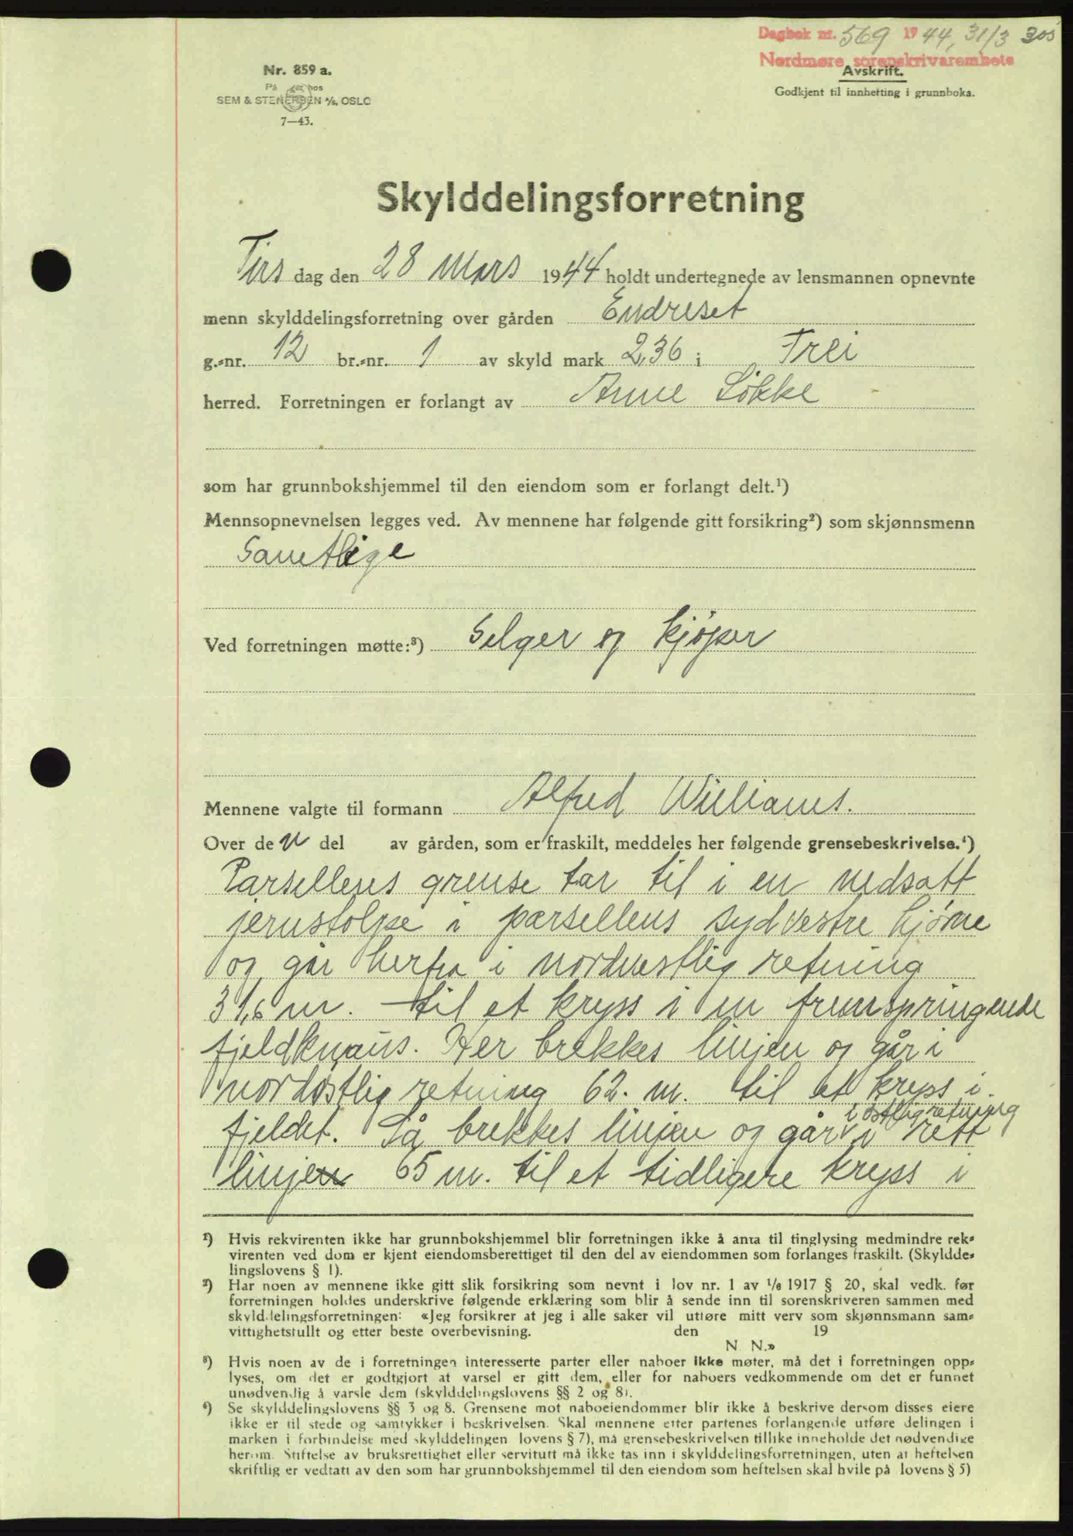 Dagbok nr. 569 1944, 31/3 305
Nordmøre sorenskrivarembete
Nr. 859 a.
På hos
SEM & STENERSEN A/S, OSLO
7—43.
Avskrift.
Godkjent til innhefting i grunnboka.
Skylddelingsforretning
Tirs dag den 28 mars 1944 holdt undertegnede av lensmannen opnevnte
menn skylddelingsforretning over gården Endreset
g.-nr. 12 br.-nr. 1 av skyld mark 2,36 i Frei
herred. Forretningen er forlangt av Anne Løkke
som har grunnbokshjemmel til den eiendom som er forlangt delt.¹)
Mennsopnevnelsen legges ved. Av mennene har følgende gitt forsikring²) som skjønnsmenn
Samtlige
Ved forretningen møtte:³) Selger og kjøper
Mennene valgte til formann Alfred Williams.
Over de n del av gården, som er fraskilt, meddeles her følgende grensebeskrivelse.⁴)
Parsellens grense tar til i en nedsatt
jernstolpe i parsellens sydvestre hjørne
og går herfra i nordvestlig retning
31,6 m. til et kryss i en fremspringende
fjeldknaus. Her brekkes linjen og går i
nordøstlig retning 62. m. til et kryss i
fjeldet. Så brekkes linjen og går i østlig retning i rett
linjen 65 m. til et tidligere kryss i
¹) Hvis rekvirenten ikke har grunnbokshjemmel blir forretningen ikke å anta til tinglysing medmindre rek-
virenten ved dom er kjent eiendomsberettiget til den del av eiendommen som forlanges fraskilt. (Skyldde-
lingslovens § 1).
²) Har noen av mennene ikke gitt slik forsikring som nevnt i lov nr. 1 av 1/6 1917 § 20, skal vedk. før
forretningen holdes underskrive følgende erklæring som blir å sende inn til sorenskriveren sammen med
skylddelingsforretningen: «Jeg forsikrer at jeg i alle saker vil utføre mitt verv som skjønnsmann sam-
vittighetsfullt og etter beste overbevisning. den 19
N. N.»
³) Hvis noen av de i forretningen interesserte parter eller naboer ikke møter, må det i forretningen opp-
lyses, om det er godtgjort at varsel er gitt dem, eller for naboers vedkommende om det er funnet
unødvendig å varsle dem (skylddelingslovens §§ 2 og 8).
⁴) Se skylddelingslovens §§ 3 og 8. Grensene mot naboeiendommer blir ikke å beskrive dersom disses eiere
ikke er til stede og samtykker i beskrivelsen. Skal mennene etter partenes forlangende utføre delingen i
marken i forbindelse med skylddelingen lovens § 7), må grensebeskrivelsen tillike inneholde det nødvendige
herom. Stiftelse av bruksrettighet eller servitutt må ikke tas inn i skylddelingsforretningen, uten at heftelsen
skriftlig er vedtatt av den som har grunnbokshjemmel til den eiendom som heftelsen skal hvile på lovens § 5)